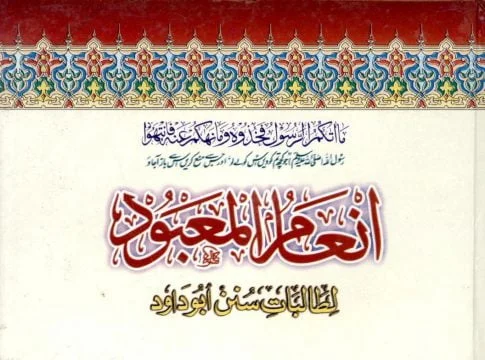 مَا اٰتٰكُمُ الرَّسُوْلُ فَخُذُوْهُ وَمَا نَهٰكُمْ عَنْهُ فَانْتَهُوْا
رسول اللہ (صلی اللہ علیہ وسلم) جو کچھ تم کو دیں اس کو لے لو اور جس سے منع کریں اس سے باز آجاؤ
انعام المعبود
لطالبات سنن ابو داود